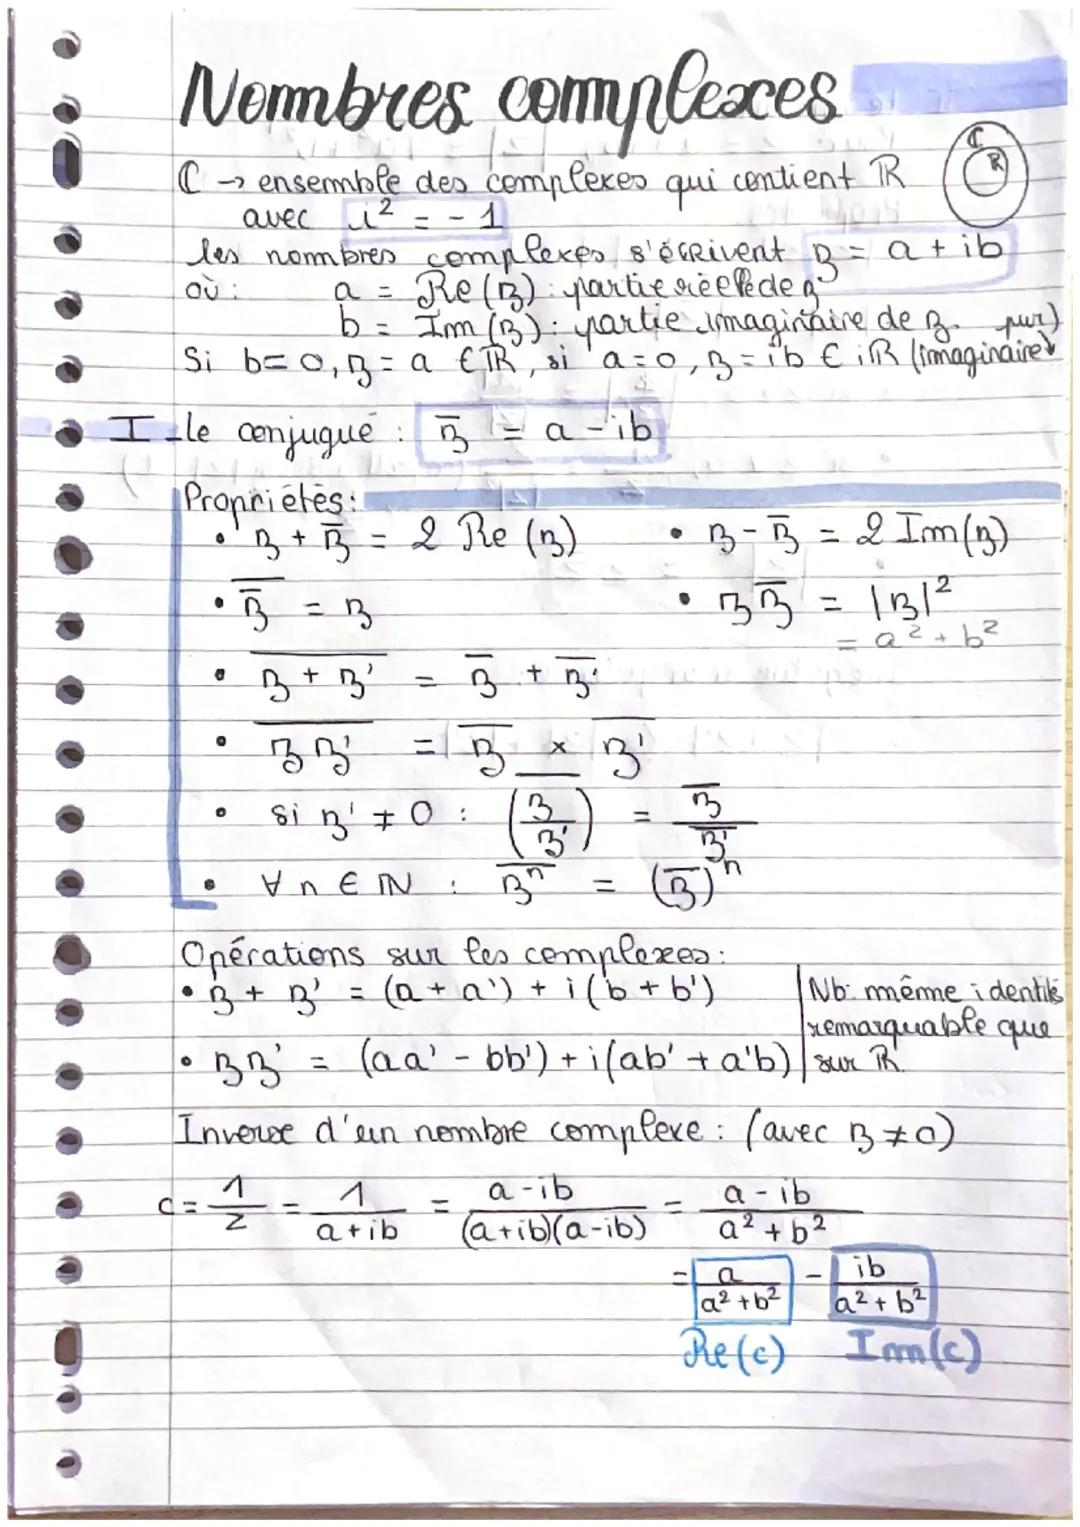 Nombres complexes
ℂ → ensemble des complexes qui contient ℝ
ℂ
ℝ
avec i² = -1
les nombres complexes s'écrivent z = a + ib
où : a = Re(z) : partie réelle de z
b = Im(z) : partie imaginaire de z.
Si b=0, z = a ∈ ℝ, si a=0, z = ib ∈ iℝ (imaginaire pur)
I - le conjugué : z̅ = a - ib
Propriétés :
• z + z̅ = 2 Re(z) • z - z̅ = 2 Im(z)
• \overline{z̅} = z • z z̅ = |z|²
= a² + b²
• \overline{z + z'} = \overline{z} + \overline{z'}
• \overline{z z'} = \overline{z} × \overline{z'}
• si z' ≠ 0 : \overline{(z/z')} = \overline{z}/\overline{z'}
• ∀ n ∈ ℕ : \overline{zⁿ} = (z̅)ⁿ
Opérations sur les complexes :
• z + z' = (a + a') + i(b + b')
• zz' = (aa' - bb') + i(ab' + a'b)
Nb: même identités
remarquable que
sur ℝ.
Inverse d'un nombre complexe : (avec z ≠ 0)
c = 1/z = 1/(a+ib) = (a-ib)/((a+ib)(a-ib)) = (a-ib)/(a²+b²)
= a/(a²+b²) - ib/(a²+b²)
Re(c) Im(c)